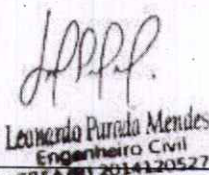 Leonardo Parada Mendes
Engenheiro Civil
2014120527